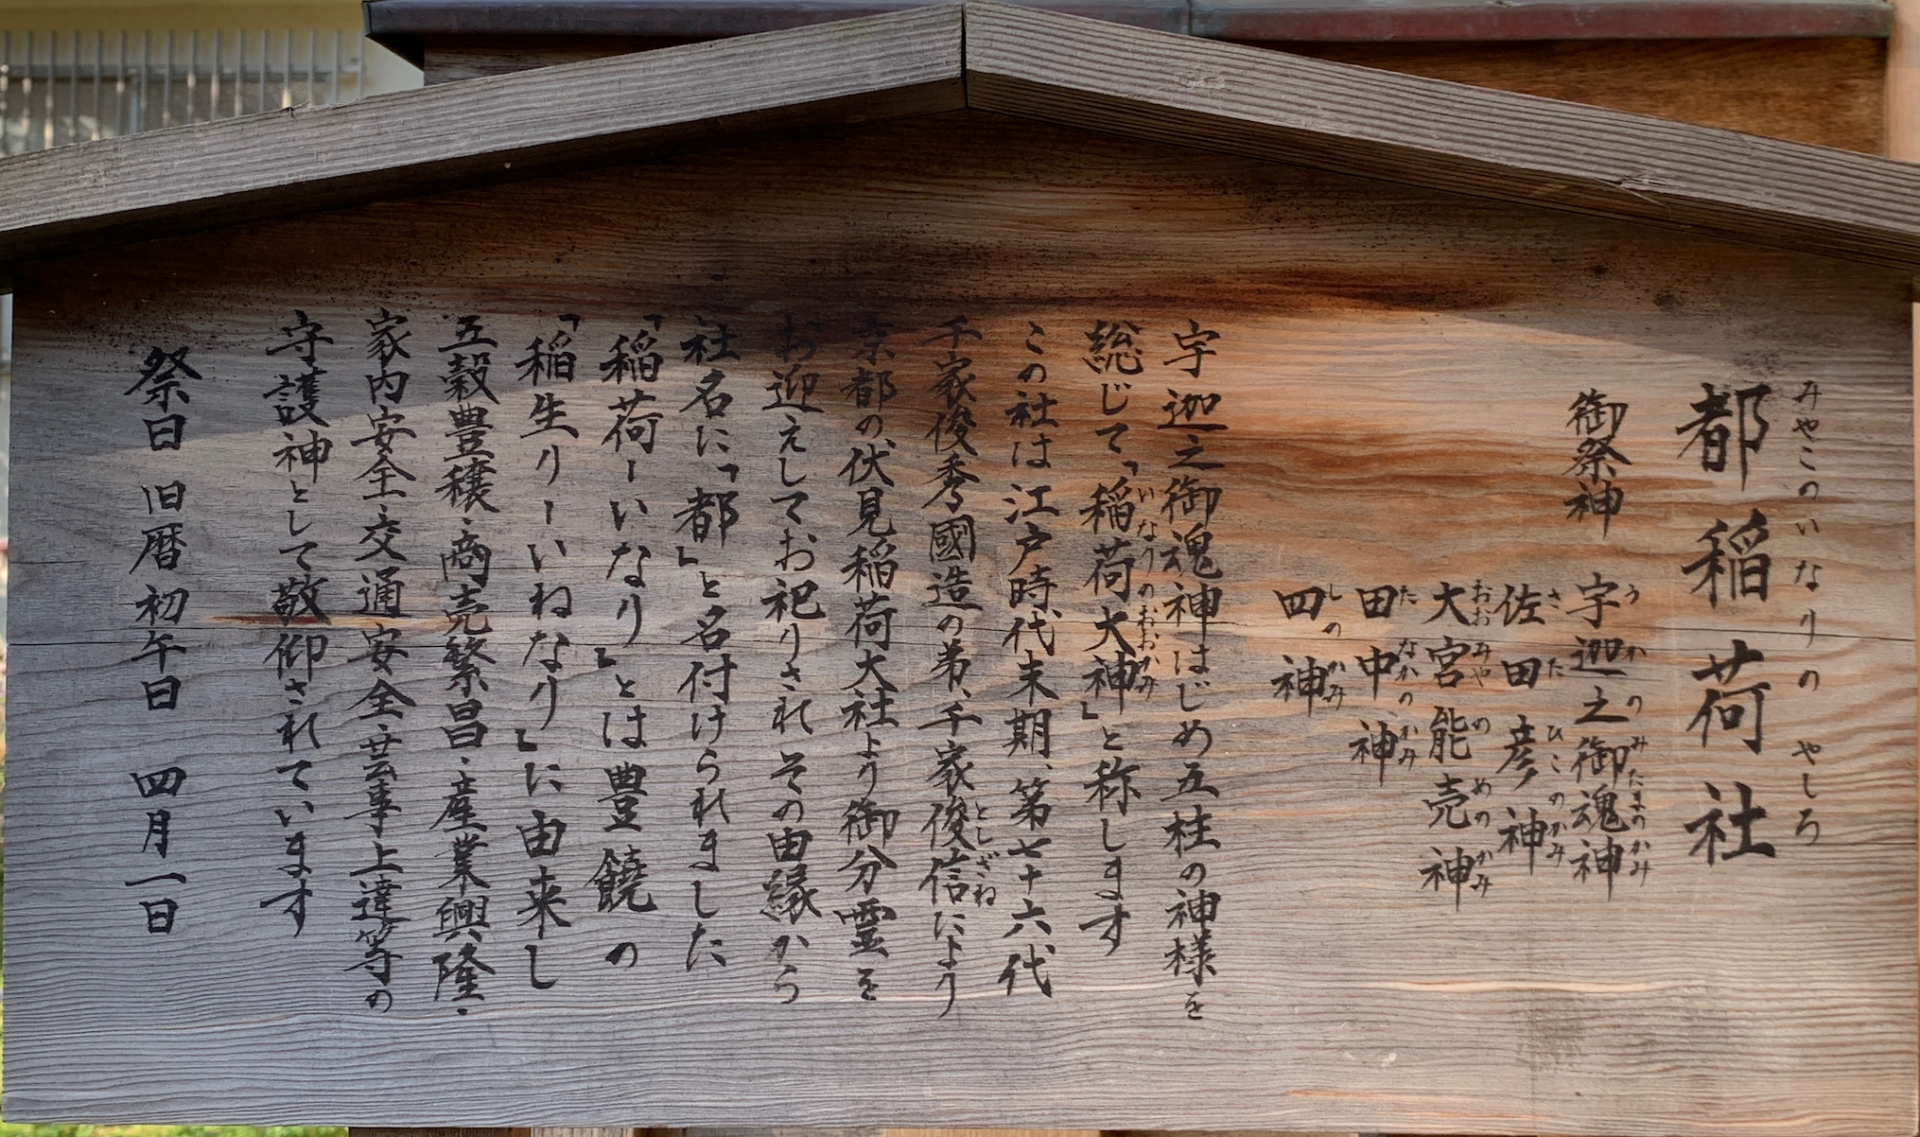 みやこのいなりの やしろ
都稲荷社
御祭神
うかのみたまのかみ
宇迦之御魂神
さたひこのかみ
佐田彦神
おおみやのめのかみ
大宮能売神
たなかのかみ
田中神
しのかみ
四神
宇迦之御魂神はじめ五柱の神様を
総じて「稲荷大神」と称します
いなりのおおかみ
この社は江戸時代末期、第七十六代
千家俊秀國造の弟、千家俊信により
としざね
京都の伏見稲荷大社より御分霊を
お迎えしてお祀りされその由縁から
社名に「都」と名付けられました
「稲荷ーいなり」とは豊饒の
「稲生りーいねなり」に由来し
五穀豊穣・商売繁昌・産業興隆・
家内安全・交通安全・芸事上達等の
守護神として敬仰されています
祭日 旧暦初午日 四月一日